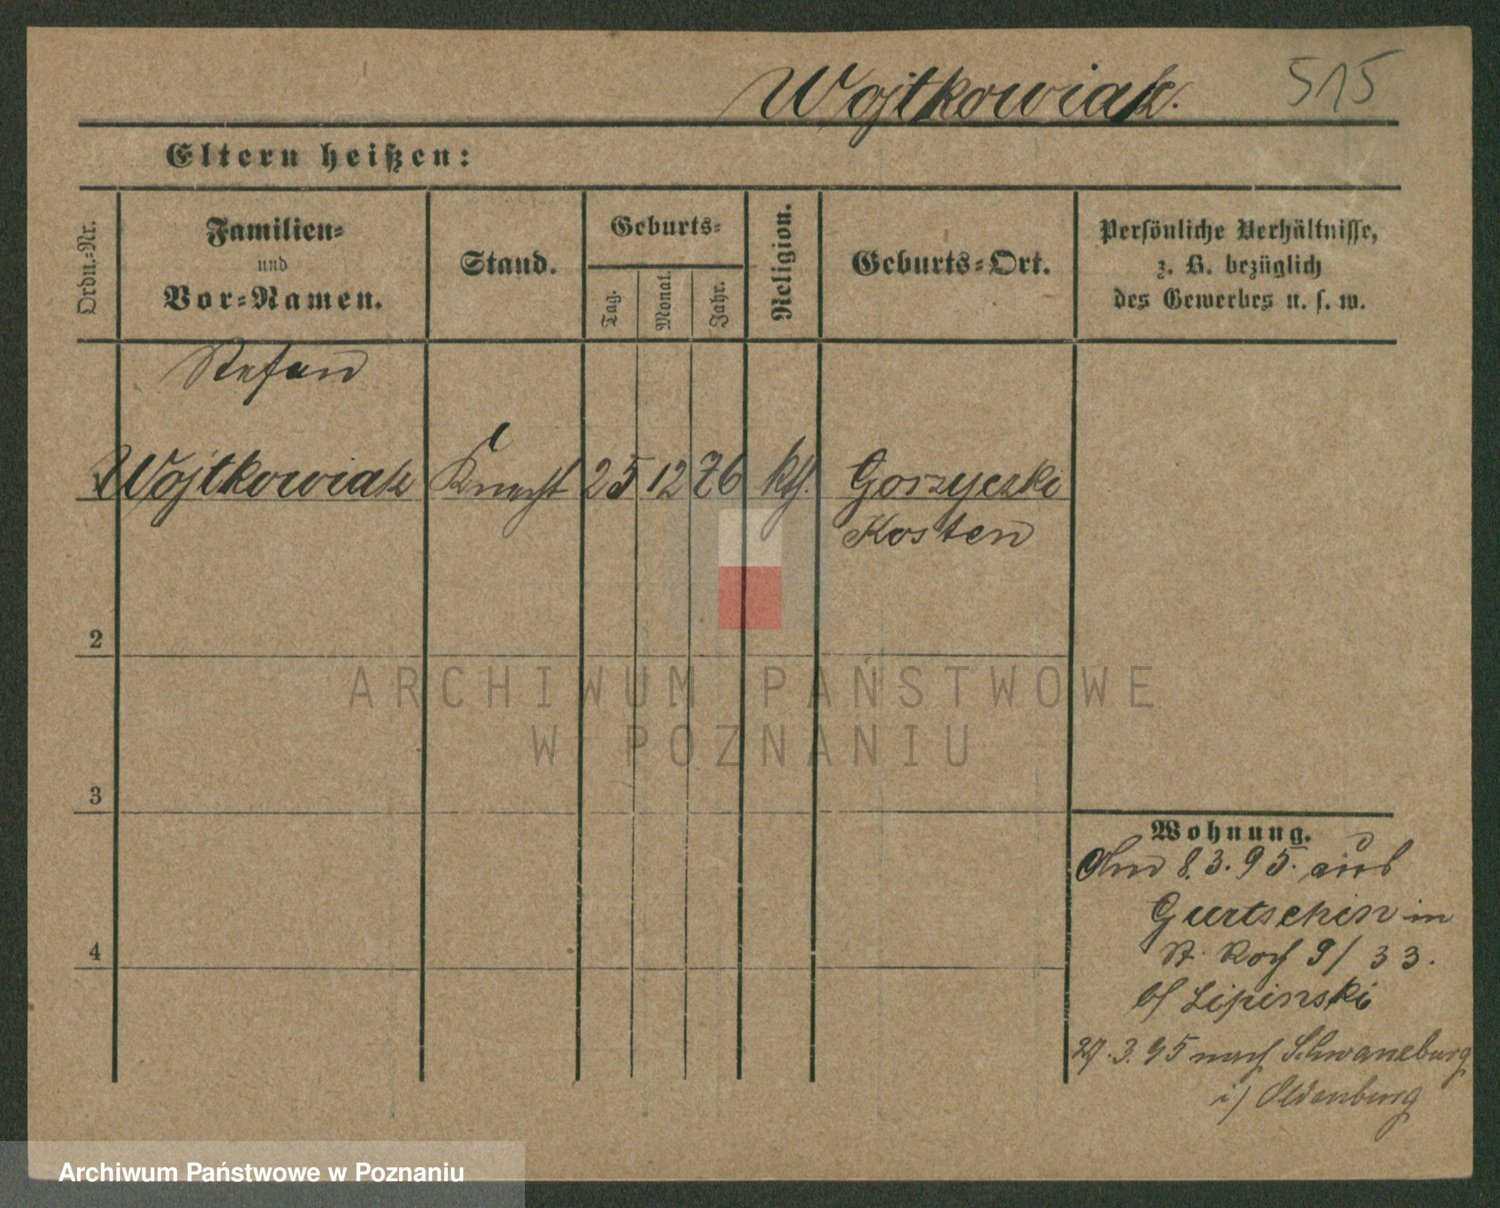 Wojtkowiak. 515
Eltern heißen:
Ordn.-Nr.
Familien-
und
Vor-Namen.
Stand.
Geburts-
Tag.
Monat.
Jahr.
Religion.
Geburts-Ort.
Persönliche Verhältnisse,
z. B. bezüglich
des Gewerbes u. s. w.
Stefan
1 Wojtkowiak Knecht 25 12 76 kth. Gorzyczki
Kosten
2
3
4
Wohnung.
8.3.95. aus
Gurtschin in
St. Roch 9/33.
b/ Lipinski
27.3.95 nach Schwaneburg
i/ Oldenburg
ARCHIWUM PAŃSTWOWE
W POZNANIU
Archiwum Państwowe w Poznaniu